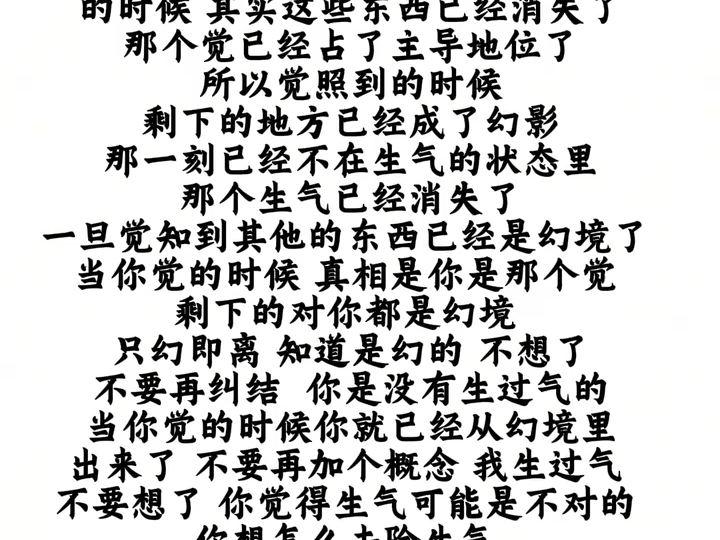 的时候 其实这些东西已经消失了
那个觉已经占了主导地位了
所以觉照到的时候
剩下的地方已经成了幻影
那一刻已经不在生气的状态里
那个生气已经消失了
一旦觉知到其他的东西已经是幻境了
当你觉的时候 真相是你是那个觉
剩下的对你都是幻境
只幻即离 知道是幻的 不想了
不要再纠结 你是没有生过气的
当你觉的时候你就已经从幻境里
出来了 不要再加个概念 我生过气
不要想了 你觉得生气可能是不对的
你想怎么去除生气